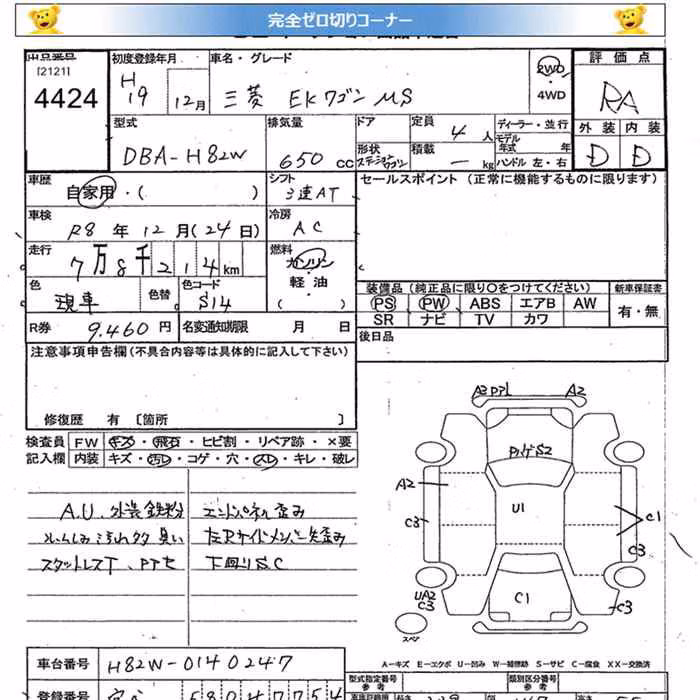 完全ゼロ切りコーナー
出品番号 初度登録年月 車名・グレード 評価点
[2121] H 2WD
4424 19 12月 三菱 EKワゴン MS 4WD RA
型式 排気量 ドア 定員 4 人 ディーラー・並行 外装 内装
モデル年式 年
DBA-H82W 650 CC 形状 ステーションワゴン 積載 — kg ハンドル 左・右 D D
車歴 シフト セールスポイント (正常に機能するものに限ります)
自家用・( ) 3速AT
車検 冷房
R8 年 12 月(24 日) AC
走行 燃料
7万8千214km ガソリン
・
色 色替 色コード 軽油 装備品(純正品に限り○をつけてください) 新車保証書
現車 S14 ( ) PS PW ABS エアB AW 有・無
SR ナビ TV カワ
R券 9,460 円 名変通知期限 月 日
後日品
注意事項申告欄(不具合内容等は具体的に記入して下さい)
修復歴 有 〔箇所 〕
検査員 FW キズ・飛石・ヒビ割・リペア跡・×要
記入欄 内装 キズ・汚レ・コゲ・穴・スレ・キレ・破レ
A.U.外装鉄粉 エンドパネル歪み
ルームしみ汚れ多 臭い 左Rサイドメンバー先歪み
スタットレスT、PTセ 下回りS.C
A3 PアL A2
PハゲS2
A2
U1
C3 C1
C3
UA2
C3
C1
C3
スペア
A−キズ E−エクボ U−凹み W−補修跡 S−サビ C−腐食 XX−交換済
車台番号 H82W-0140247 型式指定番号 参考 類別区分番号 参考
登録番号 580 47754